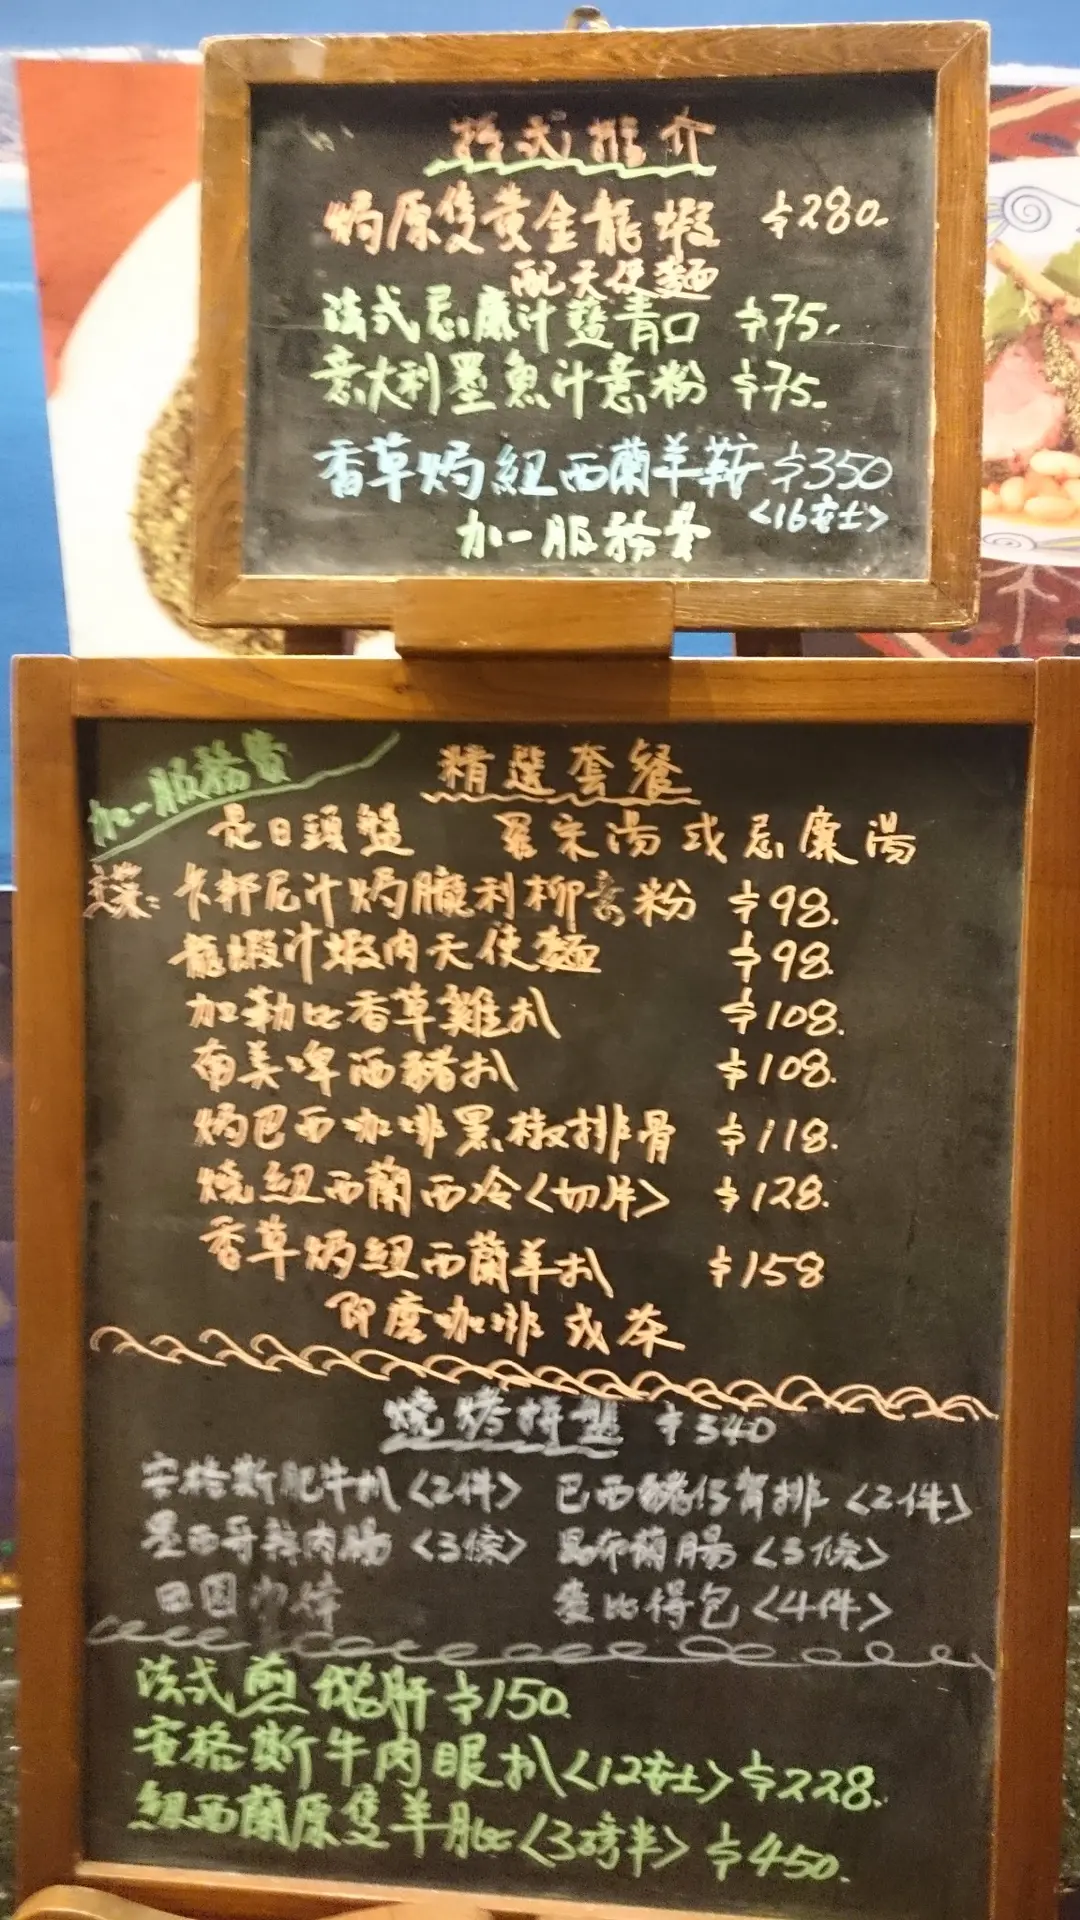 推介
焗原隻黃金龍蝦 $280.
配天使麵
法式忌廉汁煮青口 $75.
意大利墨魚汁意粉 $75.
香草焗紐西蘭羊鞍 $350
<16安士>
加一服務費
加一服務費
精選套餐
是日頭盤 羅宋湯或忌廉湯
主菜: 卡邦尼汁焗龍利柳意粉 $98.
龍蝦汁蝦肉天使麵 $98.
加勒比香草雞扒 $108.
南美啤酒豬扒 $108.
焗巴西咖啡黑椒排骨 $118.
燒紐西蘭西冷<切片> $128.
香草焗紐西蘭羊扒 $158
即磨咖啡或茶
燒烤拼盤 $340
安格斯肥牛扒<2件> 巴西豬仔骨排<2件>
墨西哥辣肉腸<3條> 昆布蘭腸<3條>
田園 麥比得包<4件>
法式煎鵝肝 $150.
安格斯牛肉眼扒<12安士> $228.
紐西蘭原隻羊肶<3磅半> $450.